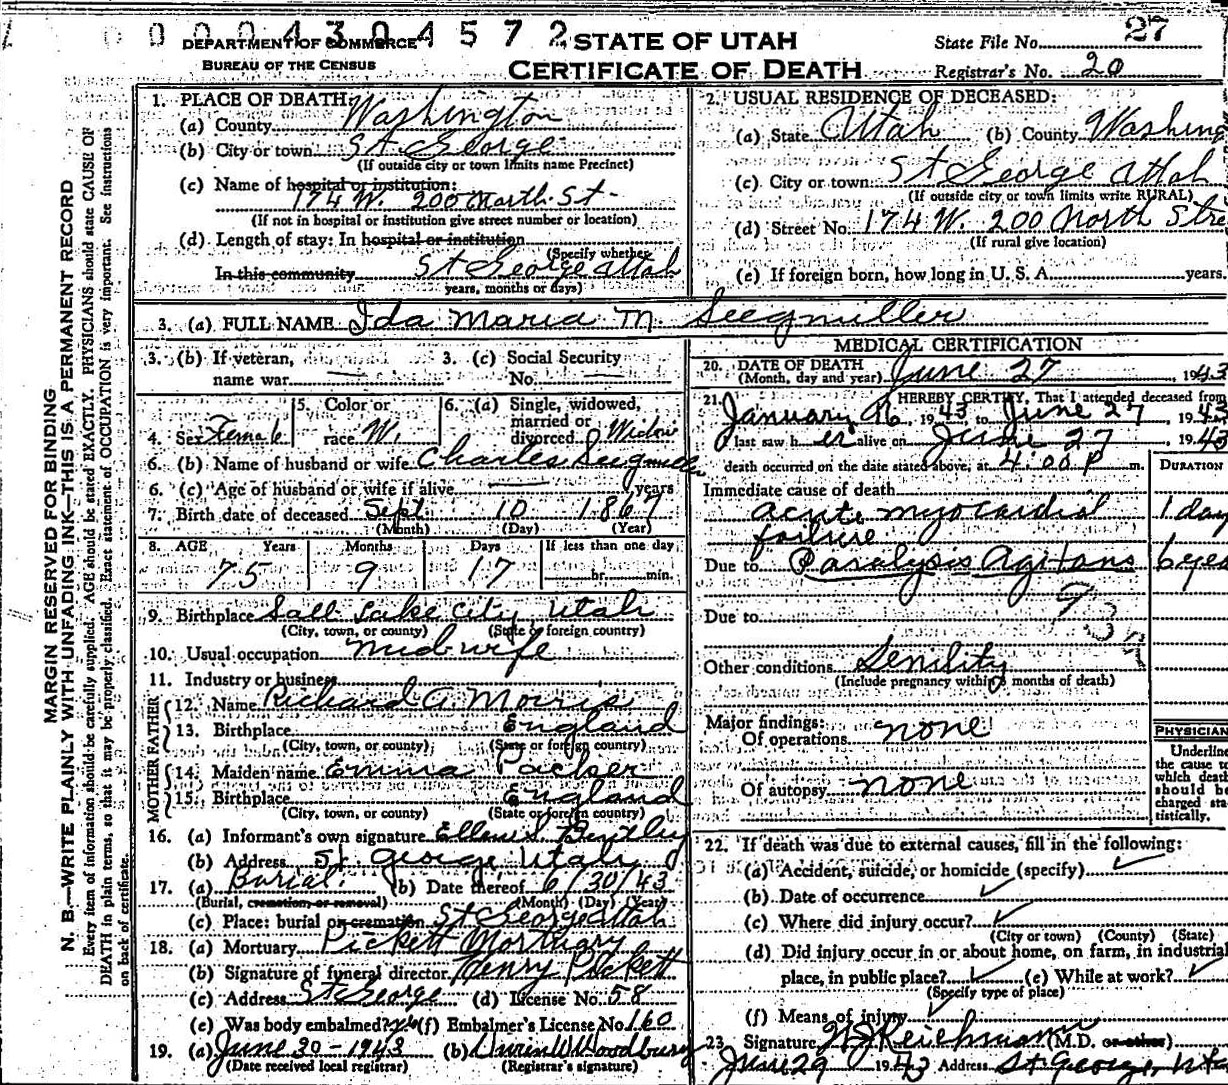 0004304572
DEPARTMENT OF COMMERCE
BUREAU OF THE CENSUS
STATE OF UTAH
CERTIFICATE OF DEATH
State File No. 27
Registrar's No. 20
MARGIN RESERVED FOR BINDING
N. B.—WRITE PLAINLY WITH UNFADING INK—THIS IS A PERMANENT RECORD
Every item of information should be carefully supplied. AGE should be stated EXACTLY. PHYSICIANS should state CAUSE OF
DEATH in plain terms, so that it may be properly classified. Exact statement of OCCUPATION is very important. See instructions
on back of certificate.
1. PLACE OF DEATH:
(a) County Washington
(b) City or town St George
(If outside city or town limits name Precinct)
(c) Name of hospital or institution:
174 W. 200 North St.
(If not in hospital or institution give street number or location)
(d) Length of stay: In hospital or institution
(Specify whether
In this community St George Utah
years, months or days)
2. USUAL RESIDENCE OF DECEASED:
(a) State Utah (b) County Washing
(c) City or town St George Utah
(If outside city or town limits write RURAL)
(d) Street No. 174 W. 200 North Stre
(If rural give location)
(e) If foreign born, how long in U. S. A. years.
3. (a) FULL NAME Ida Maria M Seegmiller
3. (b) If veteran, name war — 3. (c) Social Security No. —
4. Sex Female 5. Color or race W. 6. (a) Single, widowed, married or divorced Widow
6. (b) Name of husband or wife Charles Seegmiller
6. (c) Age of husband or wife if alive — years
7. Birth date of deceased Sept. 10 1867
(Month) (Day) (Year)
8. AGE Years Months Days If less than one day
75 9 17 hr. min.
9. Birthplace Salt Lake City, Utah
(City, town, or county) (State or foreign country)
10. Usual occupation Midwife
11. Industry or business
FATHER
12. Name Richard A. Morris
13. Birthplace England
(City, town, or county) (State or foreign country)
MOTHER
14. Maiden name Emma Packer
15. Birthplace England
(City, town, or county) (State or foreign country)
16. (a) Informant's own signature Ellen S
(b) Address St. George, Utah
17. (a) Burial. (b) Date thereof 6/30/43
(Burial, cremation, or removal) (Month) (Day) (Year)
(c) Place: burial or cremation St George Utah
18. (a) Mortuary Pickett Mortuary
(b) Signature of funeral director Henry Pickett
(c) Address St George (d) License No. 58
(e) Was body embalmed? (f) Embalmer's License No. 160
19. (a) June 30-1943 (b) Woodbury
(Date received local registrar) (Registrar's signature)
MEDICAL CERTIFICATION
20. DATE OF DEATH
(Month, day and year) June 27, 1943
21. I HEREBY CERTIFY, That I attended deceased from
January 1943 to June 27, 1943
I last saw her alive on June 27 1943
death occurred on the date stated above, at 4:00 P m.
DURATION
Immediate cause of death
acute myocardial 1 day
failure
Due to Paralysis Agitans 6 yea
Due to
Other conditions Senility
(Include pregnancy within 3 months of death)
Major findings:
Of operations none
Of autopsy none
PHYSICIAN
Underline
the cause to
which death
should be
charged sta-
tistically.
22. If death was due to external causes, fill in the following:
(a) Accident, suicide, or homicide (specify)
(b) Date of occurrence
(c) Where did injury occur?
(City or town) (County) (State)
(d) Did injury occur in or about home, on farm, in industrial
place, in public place? (e) While at work?
(Specify type of place)
(f) Means of injury
23. Signature Reichmann (M.D. or other)
June 29 1943 Address St. George, Utah